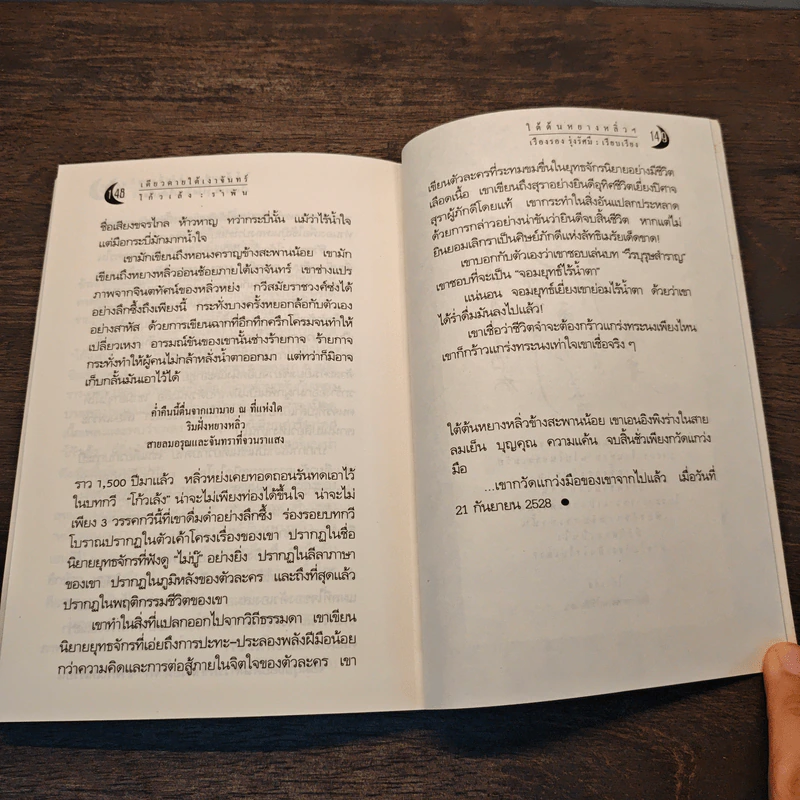 148
เดียวดายใต้เงาจันทร์
โก้วเล้ง : รำพัน
ชื่อเสียงขจรไกล ห้าวหาญ ทว่ากระบี่นั้น แม้ว่าไร้น้ำใจ
แต่มือกระบี่มักมากน้ำใจ
เขามักเขียนถึงหอนงคราญข้างสะพานน้อย เขามัก
เขียนถึงหยางหลิ่วอ่อนช้อยภายใต้เงาจันทร์ เขาช่างแปร
ภาพจากจินตทัศน์ของหลิ่วหย่ง กวีสมัยราชวงศ์ซ่งได้
อย่างลึกซึ้งถึงเพียงนี้ กระทั่งบางครั้งหยอกล้อกับตัวเอง
อย่างสาหัส ด้วยการเขียนฉากที่อึกทึกครึกโครมจนทำให้
เปลี่ยวเหงา อารมณ์ขันของเขานั้นช่างร้ายกาจ ร้ายกาจ
กระทั่งทำให้ผู้คนไม่กล้าหลั่งน้ำตาออกมา แต่ทว่าก็มิอาจ
เก็บกลั้นมันเอาไว้ได้
ค่ำคืนนี้ตื่นจากเมามาย ณ ที่แห่งใด
ริมฝั่งหยางหลิ่ว
สายลมอรุณและจันทราที่จวนราแสง
ราว 1,500 ปีมาแล้ว หลิ่วหย่งเคยทอดถอนรันทดเอาไว้
ในบทกวี "โก้วเล้ง" น่าจะไม่เพียงท่องได้ขึ้นใจ น่าจะไม่
เพียง 3 วรรคกวีนี้ที่เขาดื่มด่ำอย่างลึกซึ้ง ร่องรอยบทกวี
โบราณปรากฏในตัวเค้าโครงเรื่องของเขา ปรากฏในชื่อ
นิยายยุทธจักรที่ฟังดู "ไม่บู๊" อย่างยิ่ง ปรากฏในลีลาภาษา
ของเขา ปรากฏในภูมิหลังของตัวละคร และถึงที่สุดแล้ว
ปรากฏในพฤติกรรมชีวิตของเขา
เขาทำในสิ่งที่แปลกออกไปจากวิถีธรรมดา เขาเขียน
นิยายยุทธจักรที่เอ่ยถึงการปะทะ–ประลองพลังฝีมือน้อย
กว่าความคิดและการต่อสู้ภายในจิตใจของตัวละคร เขา
ใต้ต้นหยางหลิ่วฯ
เรืองรอง รุ่งรัศมี : เรียบเรียง
149
เขียนตัวละครที่ระทมขมขื่นในยุทธจักรนิยายอย่างมีชีวิต
เลือดเนื้อ เขาเขียนถึงสุราอย่างยินดีอุทิศชีวิตเยี่ยงปิศาจ
สุราผู้ภักดีโดยแท้ เขากระทำในสิ่งอันแปลกประหลาด
ด้วยการกล่าวอย่างน่าขันว่ายินดีจบสิ้นชีวิต หากแต่ไม่
ยินยอมเลิกราเป็นศิษย์ภักดีแห่งลัทธิเมรัยเด็ดขาด!
เขาบอกกับตัวเองว่าเขาชอบเล่นบท "วีรบุรุษสำราญ"
เขาชอบที่จะเป็น "จอมยุทธ์ไร้น้ำตา"
แน่นอน จอมยุทธ์เยี่ยงเขาย่อมไร้น้ำตา ด้วยว่าเขา
ได้ร่ำดื่มมันลงไปแล้ว!
เขาเชื่อว่าชีวิตจำจะต้องกร้าวแกร่งทระนงเพียงไหน
เขาก็กร้าวแกร่งทระนงเท่าใจเขาเชื่อจริง ๆ
ใต้ต้นหยางหลิ่วข้างสะพานน้อย เขาเอนอิงพิงร่างในสาย
ลมเย็น บุญคุณ ความแค้น จบสิ้นชั่วเพียงกวัดแกว่ง
มือ
...เขากวัดแกว่งมือของเขาจากไปแล้ว เมื่อวันที่
21 กันยายน 2528 ●